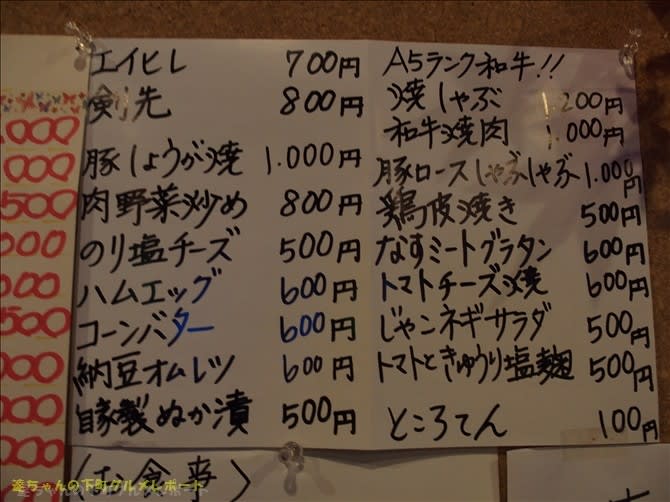 エイヒレ 700円
剣先 800円
豚しょうが焼 1.000円
肉野菜炒め 800円
のり塩チーズ 500円
ハムエッグ 600円
コーンバター 600円
納豆オムレツ 600円
自家製ぬか漬 500円
A5ランク和牛!!
焼しゃぶ 1.200円
和牛焼肉 1.000円
豚ロースしゃぶしゃぶ 1.000円
鶏皮焼き 500円
なすミートグラタン 600円
トマトチーズ焼 600円
じゃこネギサラダ 500円
トマトときゅうり塩麹 500円
ところてん 100円
.000
000
500
000
000
500
000
000
000
婆ちゃんの下町グルメレポート